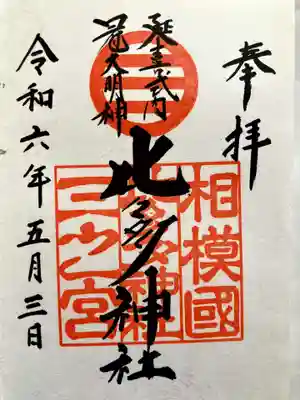 奉拝
延喜式内
冠大明神
比々多神社
相模國
比々多神社
三之宮
令和六年五月三日